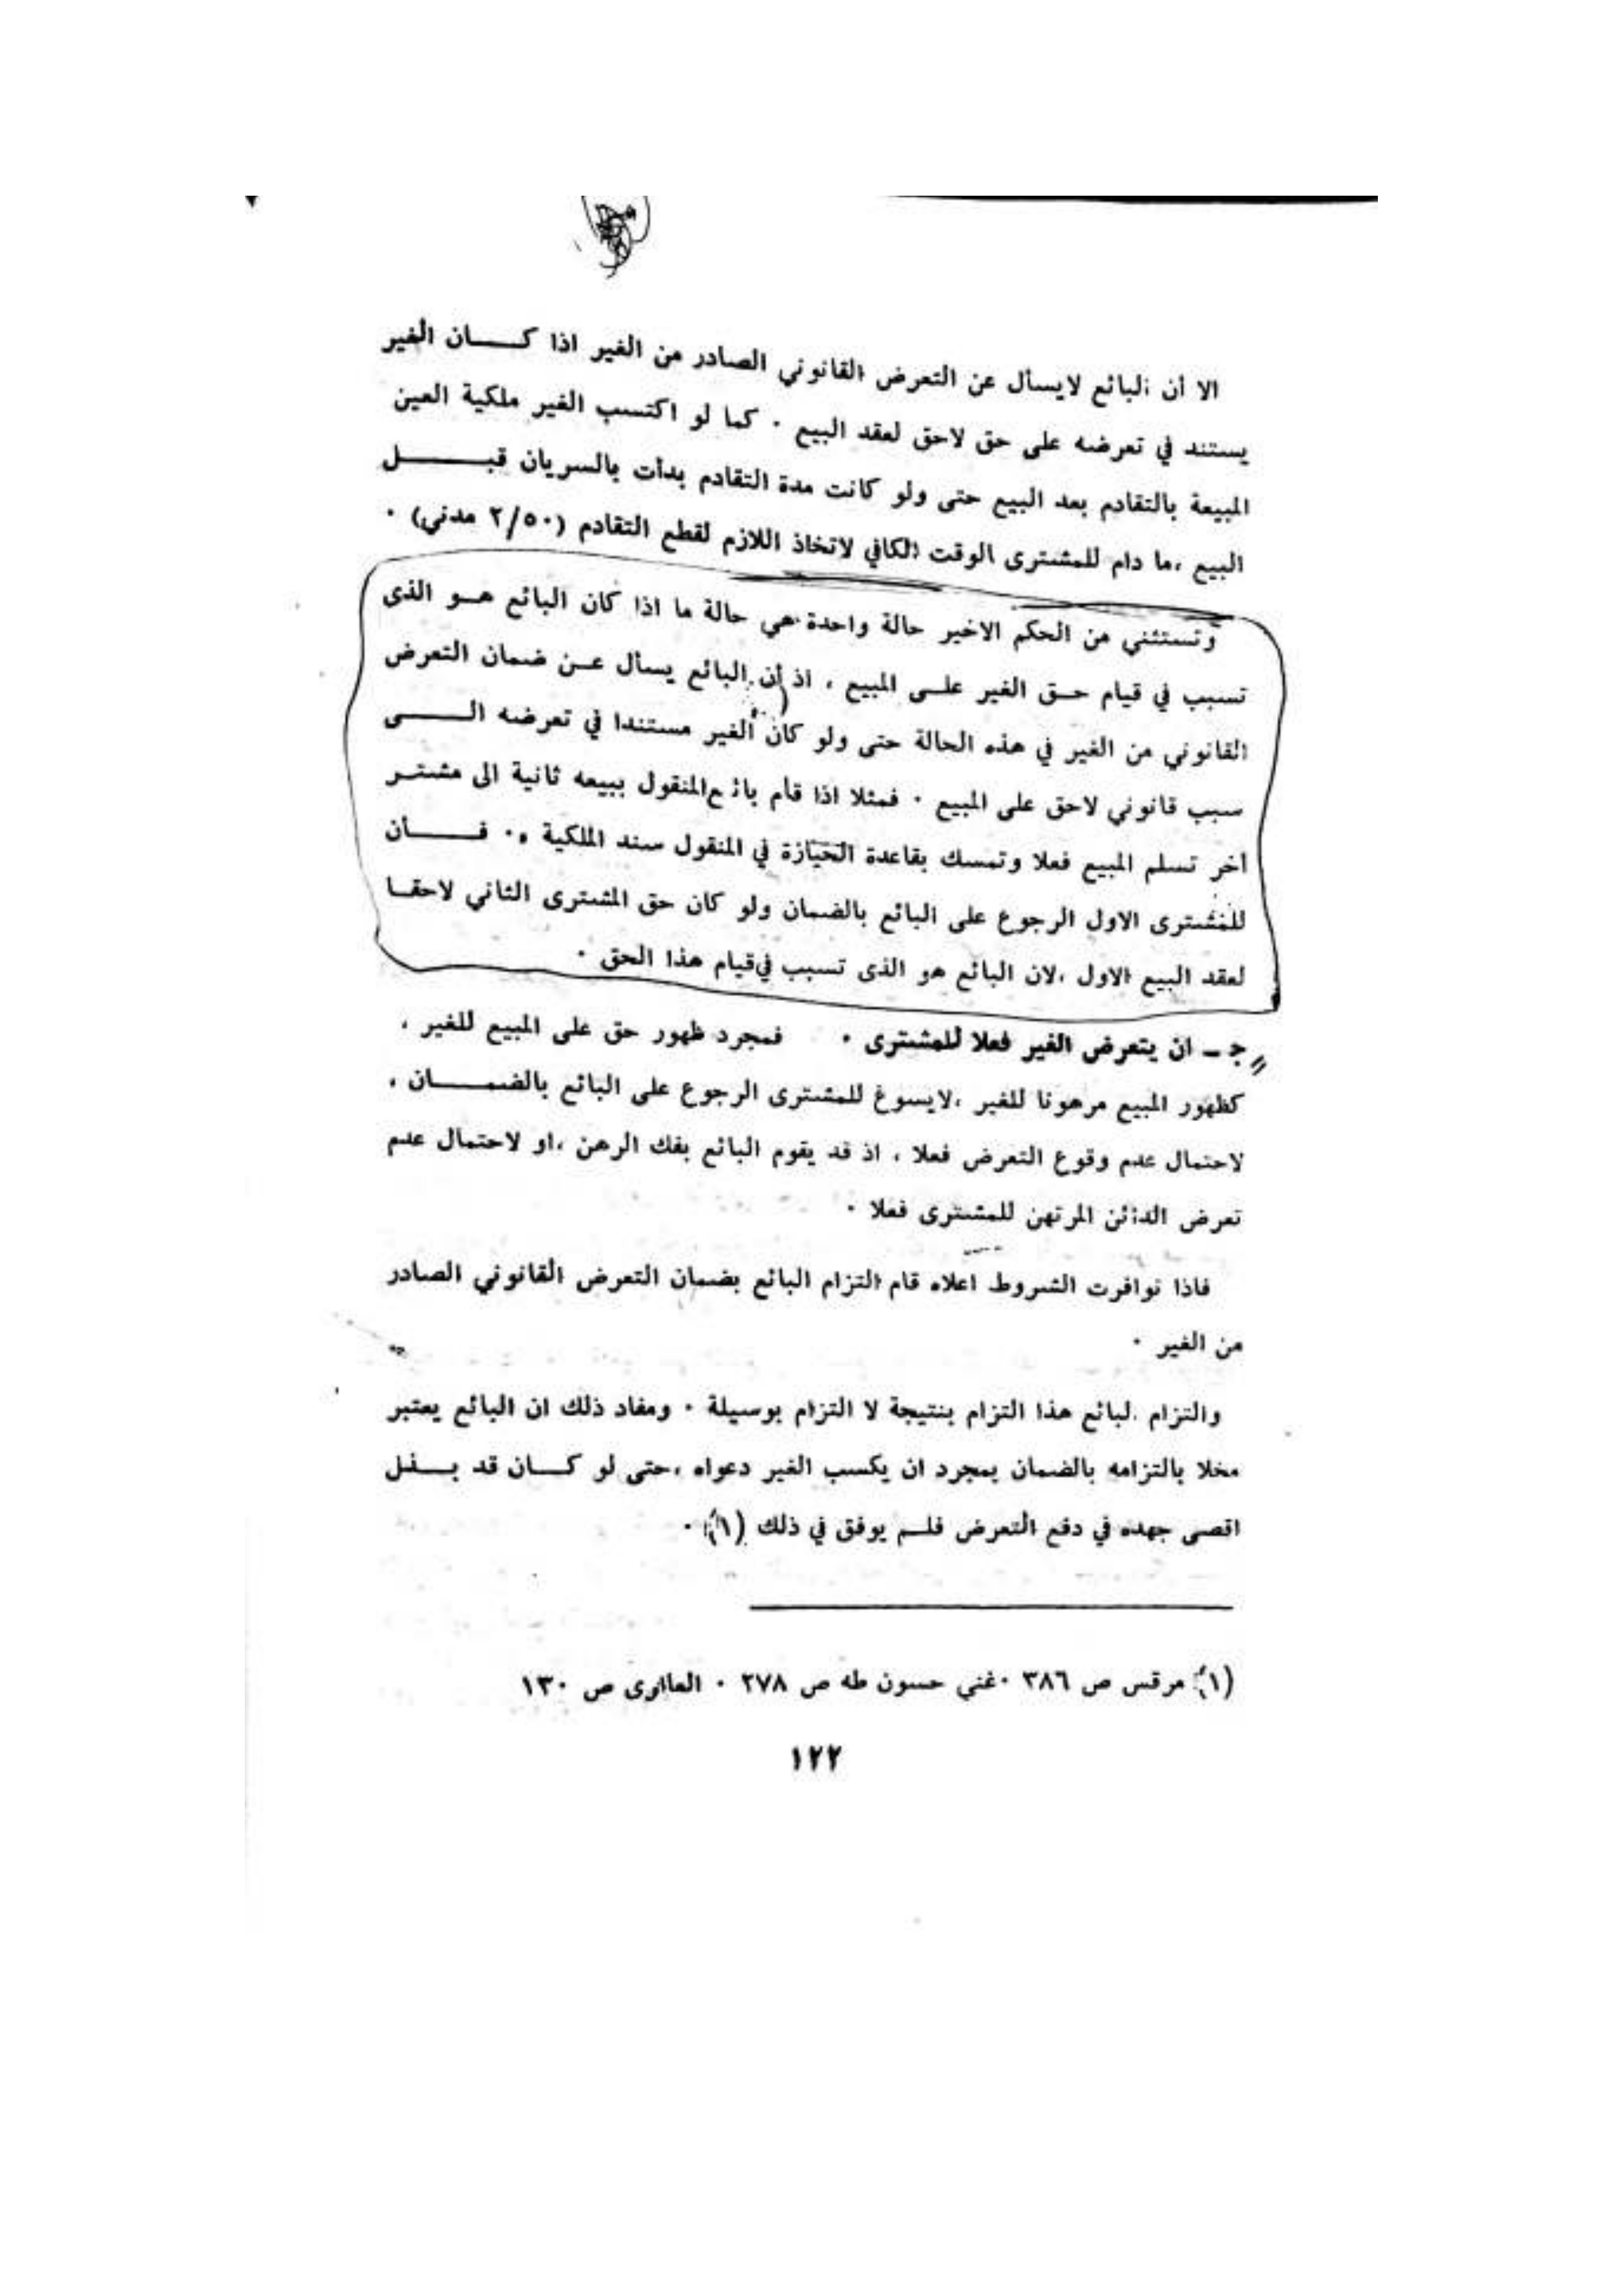 الا أن البائع لايسأل عن التعرض القانوني الصادر من الغير اذا كـــان الغير
يستند في تعرضه على حق لاحق لعقد البيع . كما لو اكتسب الغير ملكية العين
المبيعة بالتقادم بعد البيع حتى ولو كانت مدة التقادم بدأت بالسريان قبــــل
البيع ،ما دام للمشترى الوقت الكافي لاتخاذ اللازم لقطع التقادم (٢/٥٠ مدني) .
وتستثني من الحكم الاخير حالة واحدة هي حالة ما اذا كان البائع هـو الذى
تسبب في قيام حـق الغير علـى المبيع ، اذ أن البائع يسأل عـن ضمان التعرض
القانوني من الغير في هذه الحالة حتى ولو كان الغير مستندا في تعرضه الــــى
سبب قانوني لاحق على المبيع . فمثلا اذا قام بائع المنقول ببيعه ثانية الى مشتـر
أخر تسلم المبيع فعلا وتمسك بقاعدة الحيازة في المنقول سند الملكية .. فــــأن
للمشترى الاول الرجوع على البائع بالضمان ولو كان حق المشترى الثاني لاحقـا
لعقد البيع الاول ،لان البائع هو الذى تسبب في قيام هذا الحق .
جـ ـ ان يتعرض الغير فعلا للمشترى . فمجرد ظهور حق على المبيع للغير ،
كظهور المبيع مرهونا للغير ،لايسوغ للمشترى الرجوع على البائع بالضمــــان ،
لاحتمال عدم وقوع التعرض فعلا ، اذ قد يقوم البائع بفك الرهن ،او لاحتمال عدم
تعرض الدائن المرتهن للمشترى فعلا .
فاذا توافرت الشروط اعلاه قام التزام البائع بضمان التعرض القانوني الصادر
من الغير .
والتزام البائع هذا التزام بنتيجة لا التزام بوسيلة . ومفاد ذلك ان البائع يعتبر
مخلا بالتزامه بالضمان بمجرد ان يكسب الغير دعواه ،حتى لو كـــان قد بــذل
اقصى جهده في دفع التعرض فلـم يوفق في ذلك (١) .
(١) مرقس ص ٣٨٦ . غني حسون طه ص ٢٧٨ . ص ١٣٠
١٢٢